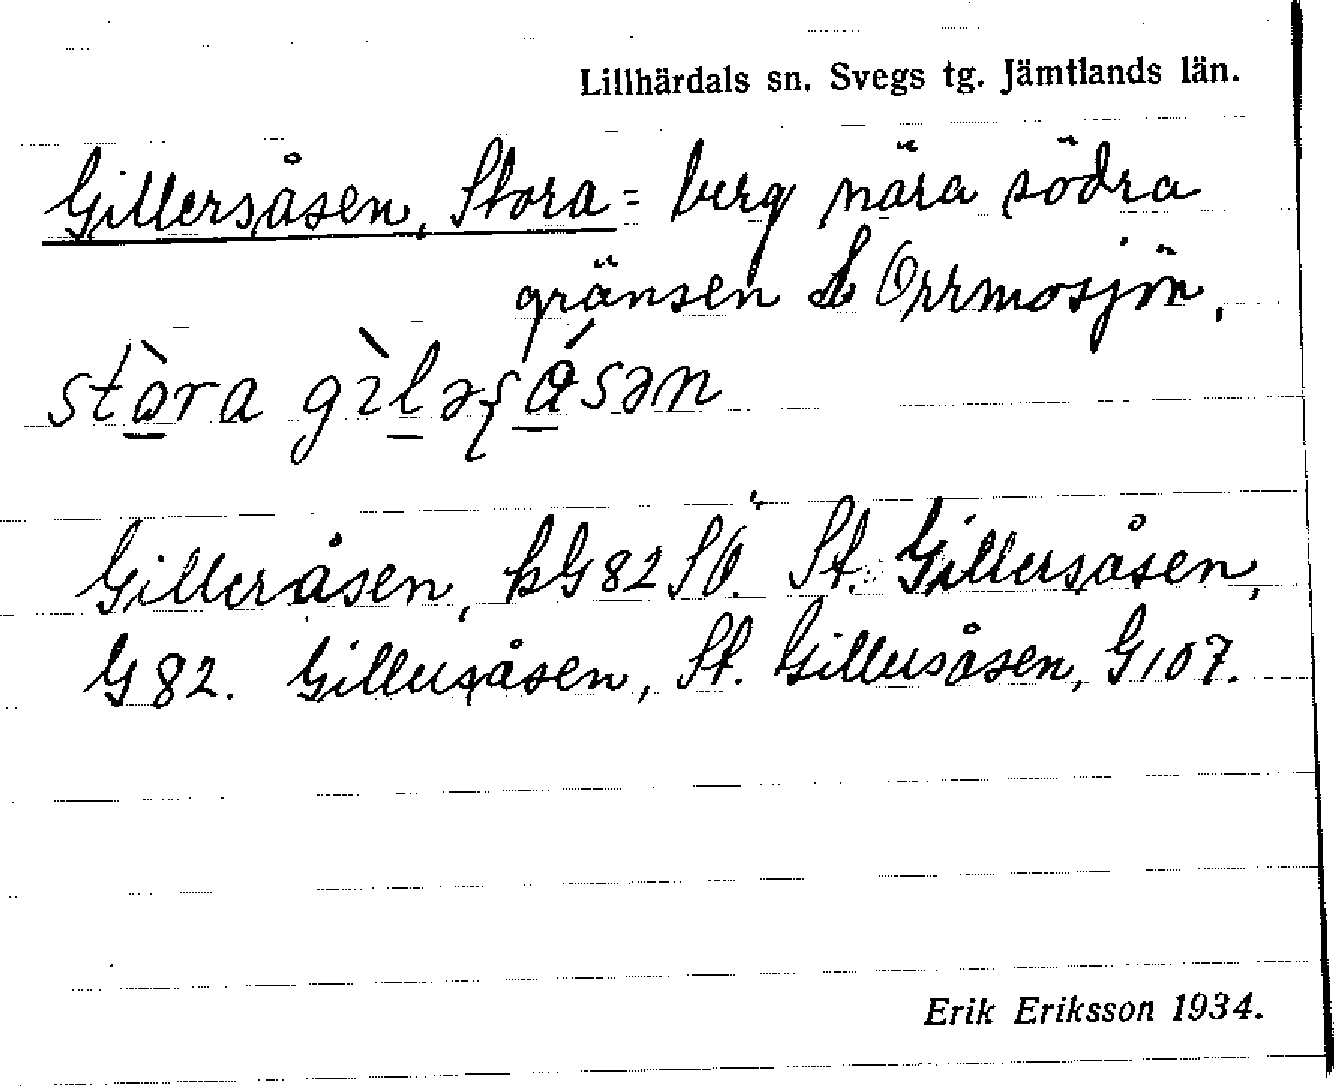 Lillhärdals sn. Svegs tg. Jämtlands län.
Gillersåsen, Stora = berg nära södra
gränsen S Orrmosjön.
stòra gìləʂåsən
Gilleråsen, kG82SÖ. St. Gillersåsen,
G82. Gillersåsen, St. Gillersåsen, G107.
Erik Eriksson 1934.